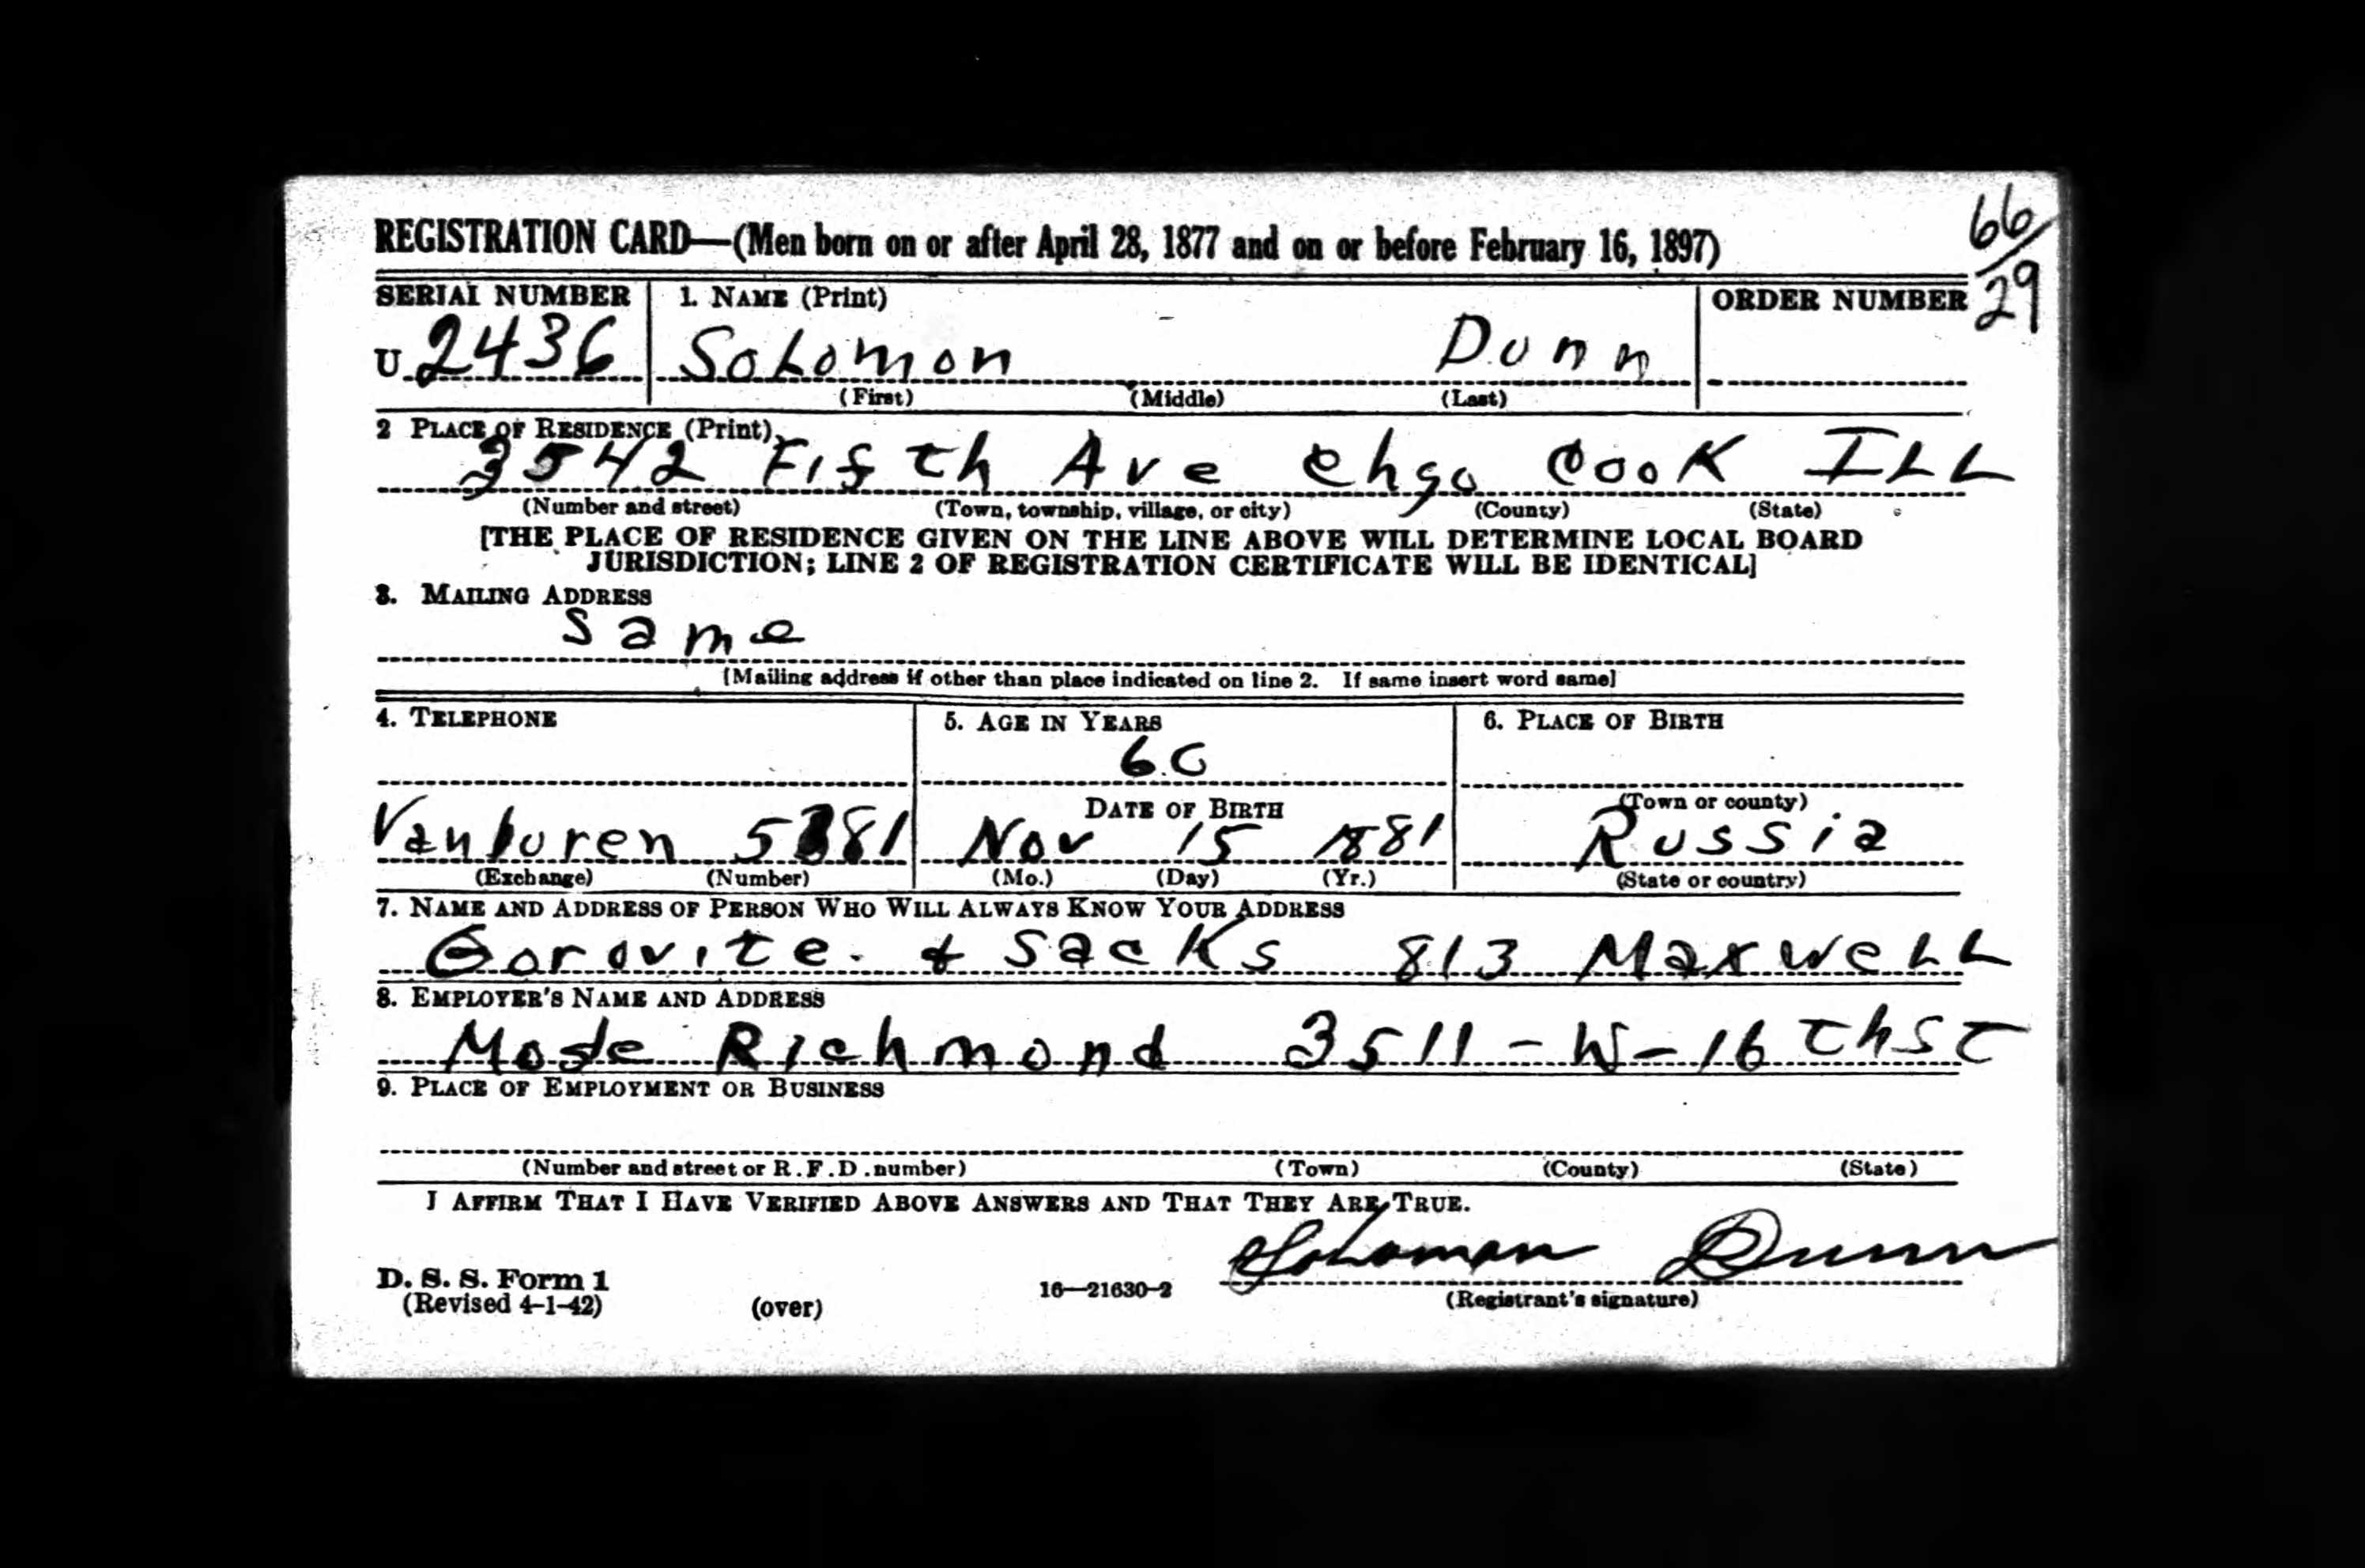 REGISTRATION CARD—(Men born on or after April 28, 1877 and on or before February 16, 1897)
66/29
SERIAL NUMBER 1. NAME (Print) ORDER NUMBER
U 2436 Solomon Dunn
(First) (Middle) (Last)
2 PLACE OF RESIDENCE (Print)
3542 Fifth Ave Chgo Cook ILL
(Number and street) (Town, township, village, or city) (County) (State)
[THE PLACE OF RESIDENCE GIVEN ON THE LINE ABOVE WILL DETERMINE LOCAL BOARD
JURISDICTION; LINE 2 OF REGISTRATION CERTIFICATE WILL BE IDENTICAL]
3. MAILING ADDRESS
Same
[Mailing address if other than place indicated on line 2. If same insert word same]
4. TELEPHONE 5. AGE IN YEARS 6. PLACE OF BIRTH
60
DATE OF BIRTH (Town or county)
Vanburen Nov 15 1881 Russia
(Exchange) (Number) (Mo.) (Day) (Yr.) (State or country)
7. NAME AND ADDRESS OF PERSON WHO WILL ALWAYS KNOW YOUR ADDRESS
Gorovite. & Sacks 813 Maxwell
8. EMPLOYER'S NAME AND ADDRESS
Richmond 3511-W-16 th St
9. PLACE OF EMPLOYMENT OR BUSINESS
(Number and street or R.F.D. number) (Town) (County) (State)
I AFFIRM THAT I HAVE VERIFIED ABOVE ANSWERS AND THAT THEY ARE TRUE.
Solomon Dunn
D. S. S. Form 1
(Revised 4-1-42) (over) 16—21630-2 (Registrant's signature)